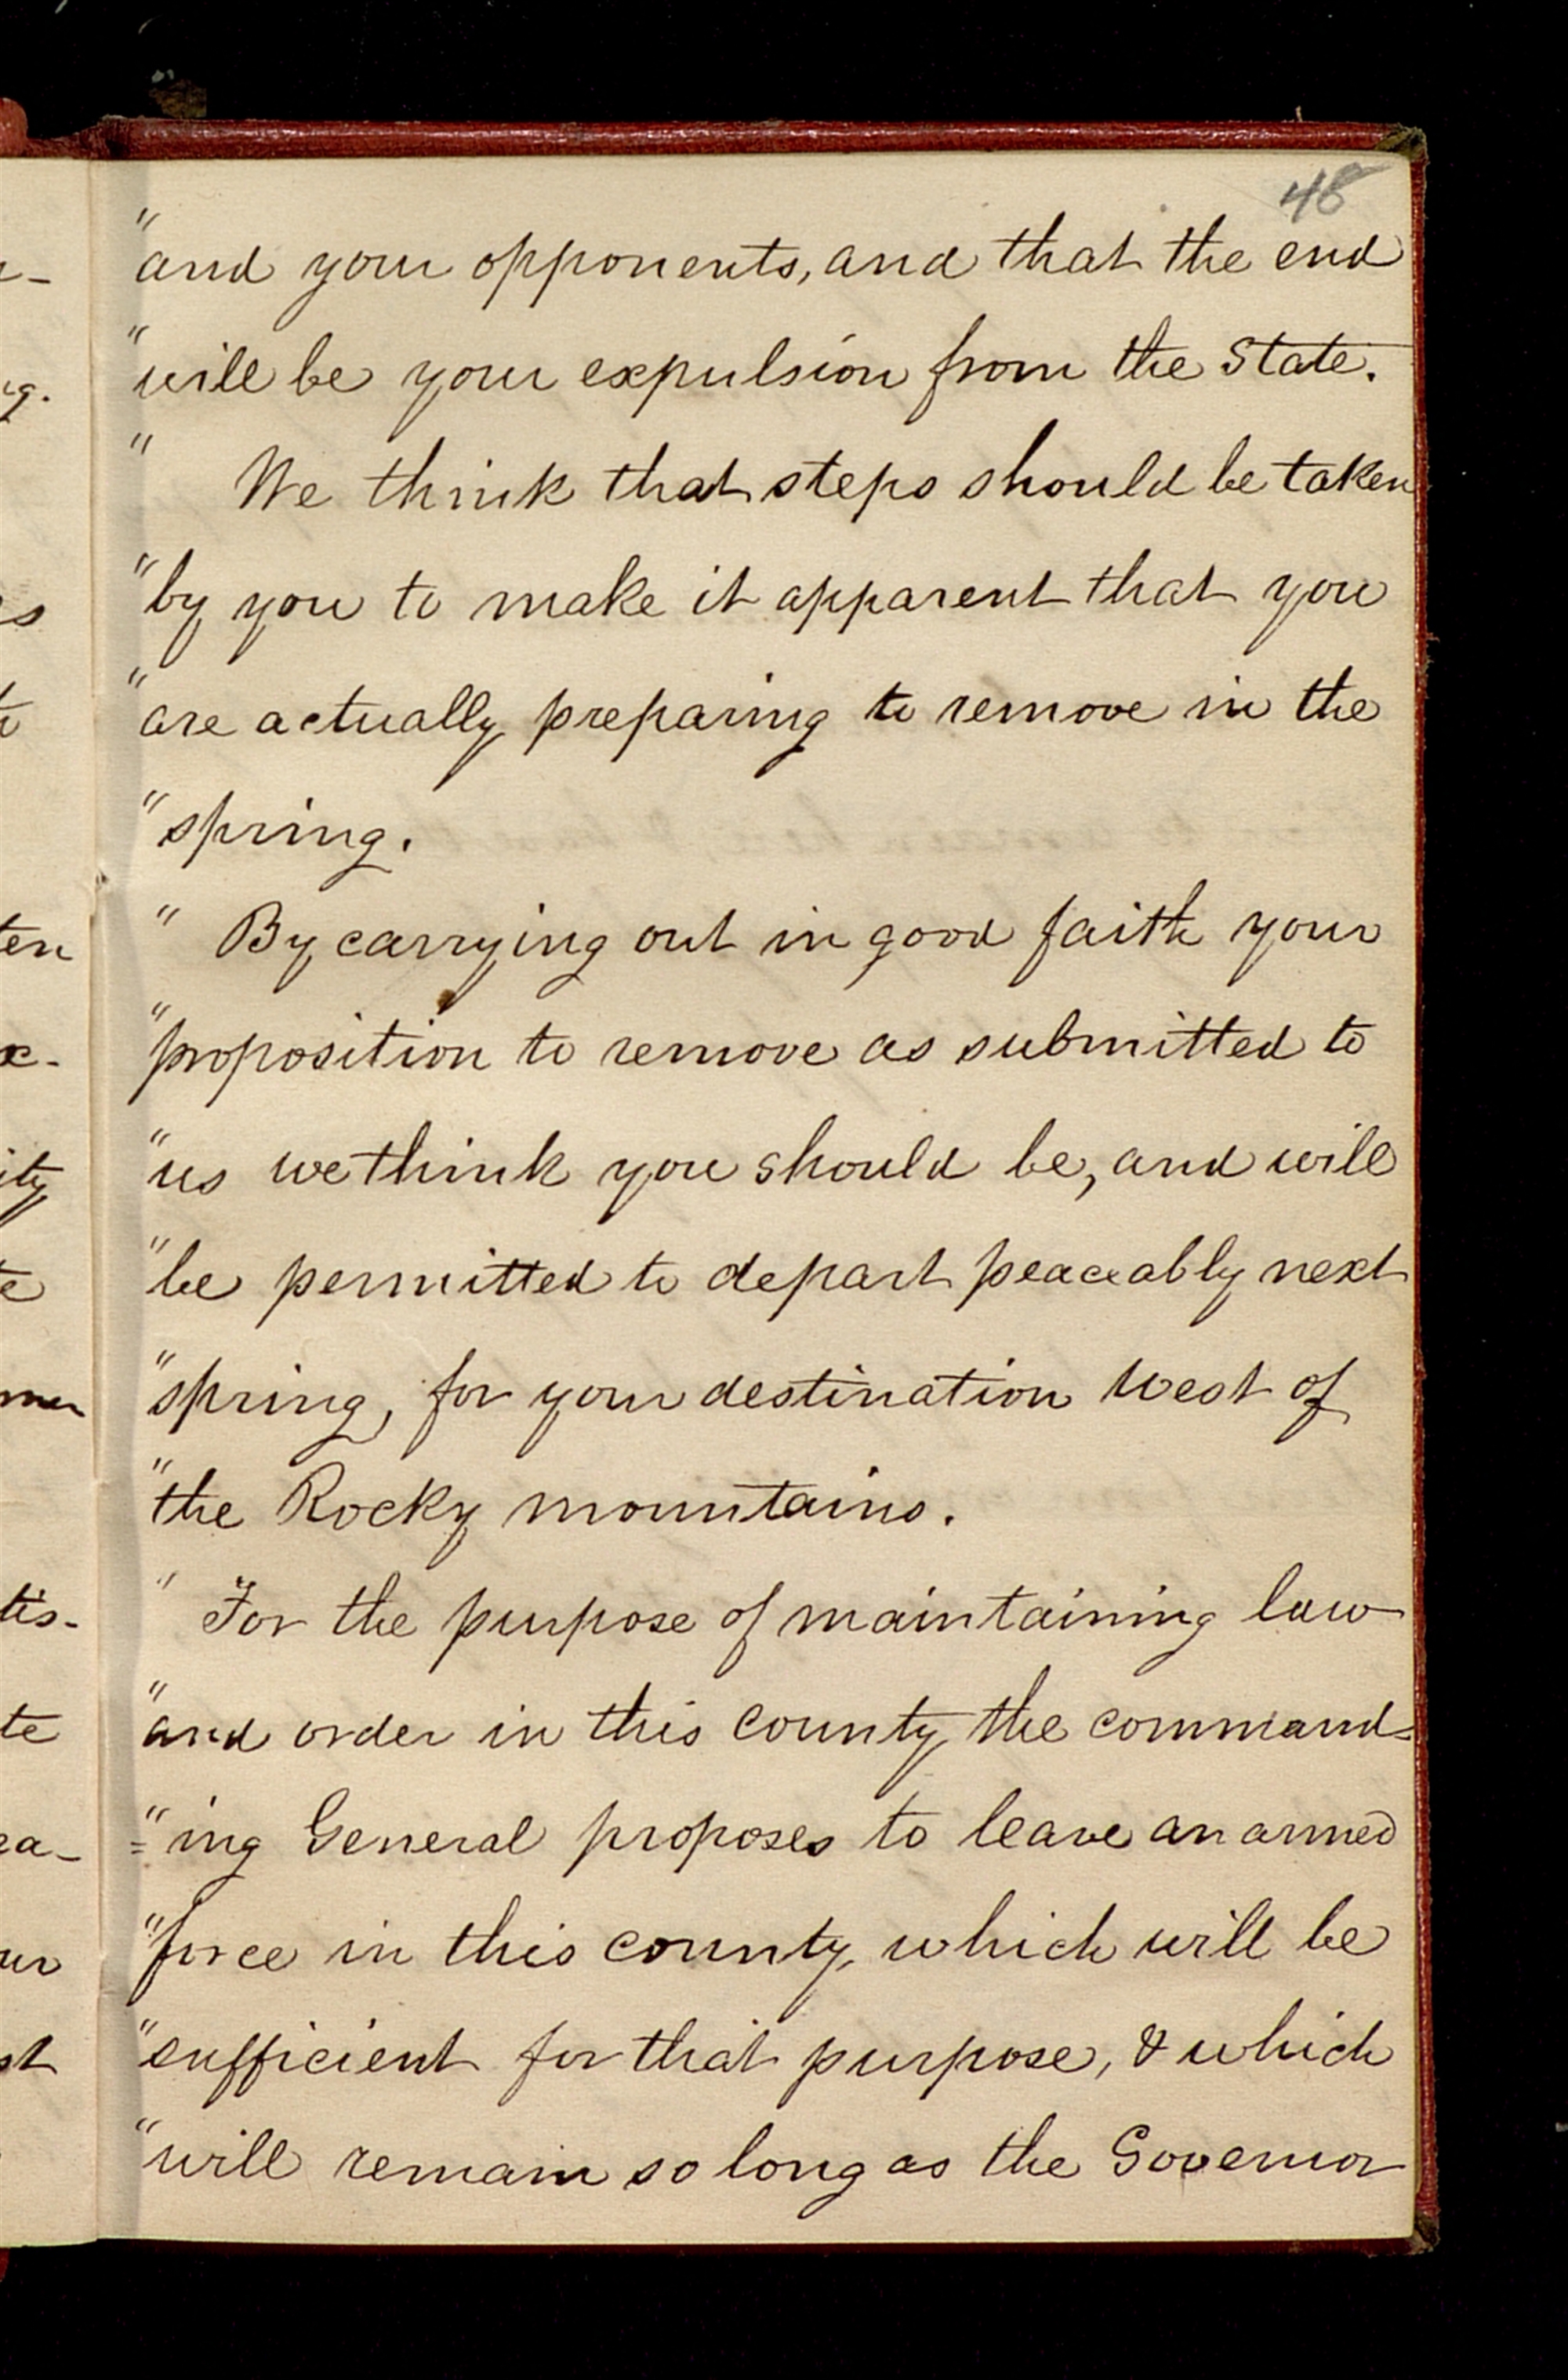 48
"and your opponents, and that the end
"will be your expulsion from the State.
" We think that steps should be taken
"by you to make it apparent that you
"are actually preparing to remove in the
"spring.
" By carrying out in good faith your
"proposition to remove as submitted to
"us we think you should be, and will
"be permitted to depart peaceably next
"spring, for your destination west of
"the Rocky mountains.
" For the purpose of maintaining law
"and order in this county, the command=
="ing General proposes to leave an armed
"force in this county, which will be
"sufficient for that purpose, & which
"will remain so long as the Governor